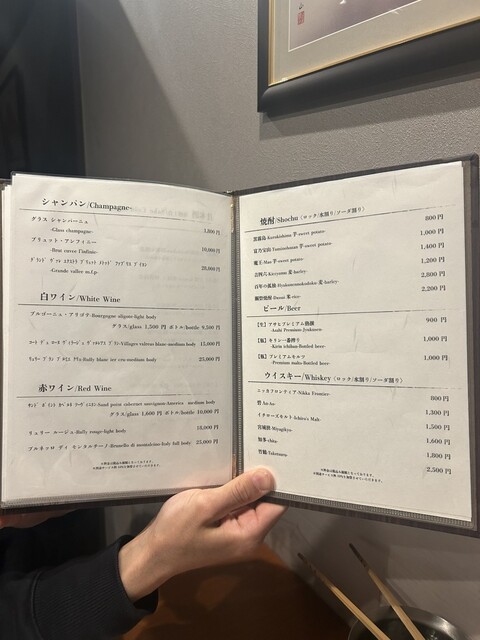 シャンパン/Champagne-
グラス シャンパーニュ 1,800 円
-Glass champagne-
ブリュット・アンフィニー 10,000 円
グランド ヴァレ エクストラ ブリュット 20,000 円
-Grande vallee m.f.p-
白ワイン/White Wine
ブルゴーニュ・アリゴテ-Bourgogne aligote-light body
グラス/glass 1,500 円 ボトル/bottle 9,500 円
-medium body 15,000 円
23,000 円
赤ワイン/Red Wine
-Sand point cabernet sauvignon-America medium body
グラス/glass 1,600 円 ボトル/bottle 10,000 円
リュリー ルージュ-Rully rouge-light body 18,000 円
ブルネッロ ディ モンタルチーノ-Brunello di montalcino-Italy full body 25,000 円
焼酎/Shochu (ロック/水割り/ソーダ割り)
黒霧島-Kurokishima 芋-sweet potato- 800 円
富乃宝山-Tominohouzan 芋-sweet potato- 1,000 円
魔王-Mao 芋-sweet potato- 1,400 円
吉四六-Kicyyomu 麦-barley- 1,200 円
百年の孤独-Hyakunennokodoku-麦-barley- 2,800 円
獺祭焼酎-Dassai 米-rice- 2,200 円
ビール/Beer
【生】アサヒプレミアム熟撰 900 円
-Asahi Premium-Jyukusen-
【瓶】キリン一番搾り 1,000 円
-Kirin ichiban-Bottled beer-
【瓶】プレミアムモルツ 1,000 円
-Premium malts-Bottled beer-
ウイスキー/Whiskey (ロック/水割り/ソーダ割り)
ニッカフロンティア-Nikka Frontier- 800 円
碧 Ao-Ao 1,300 円
イチローズモルト-Ichiro's Malt- 1,500 円
宮城峡-Miyagikyo- 1,600 円
知多-chita- 1,800 円
竹鶴-Taketsuru- 2,500 円